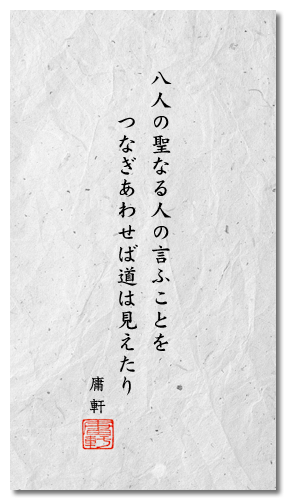 八人の聖なる人の言ふことを
つなぎあわせば道は見えたり
庸軒
庸軒